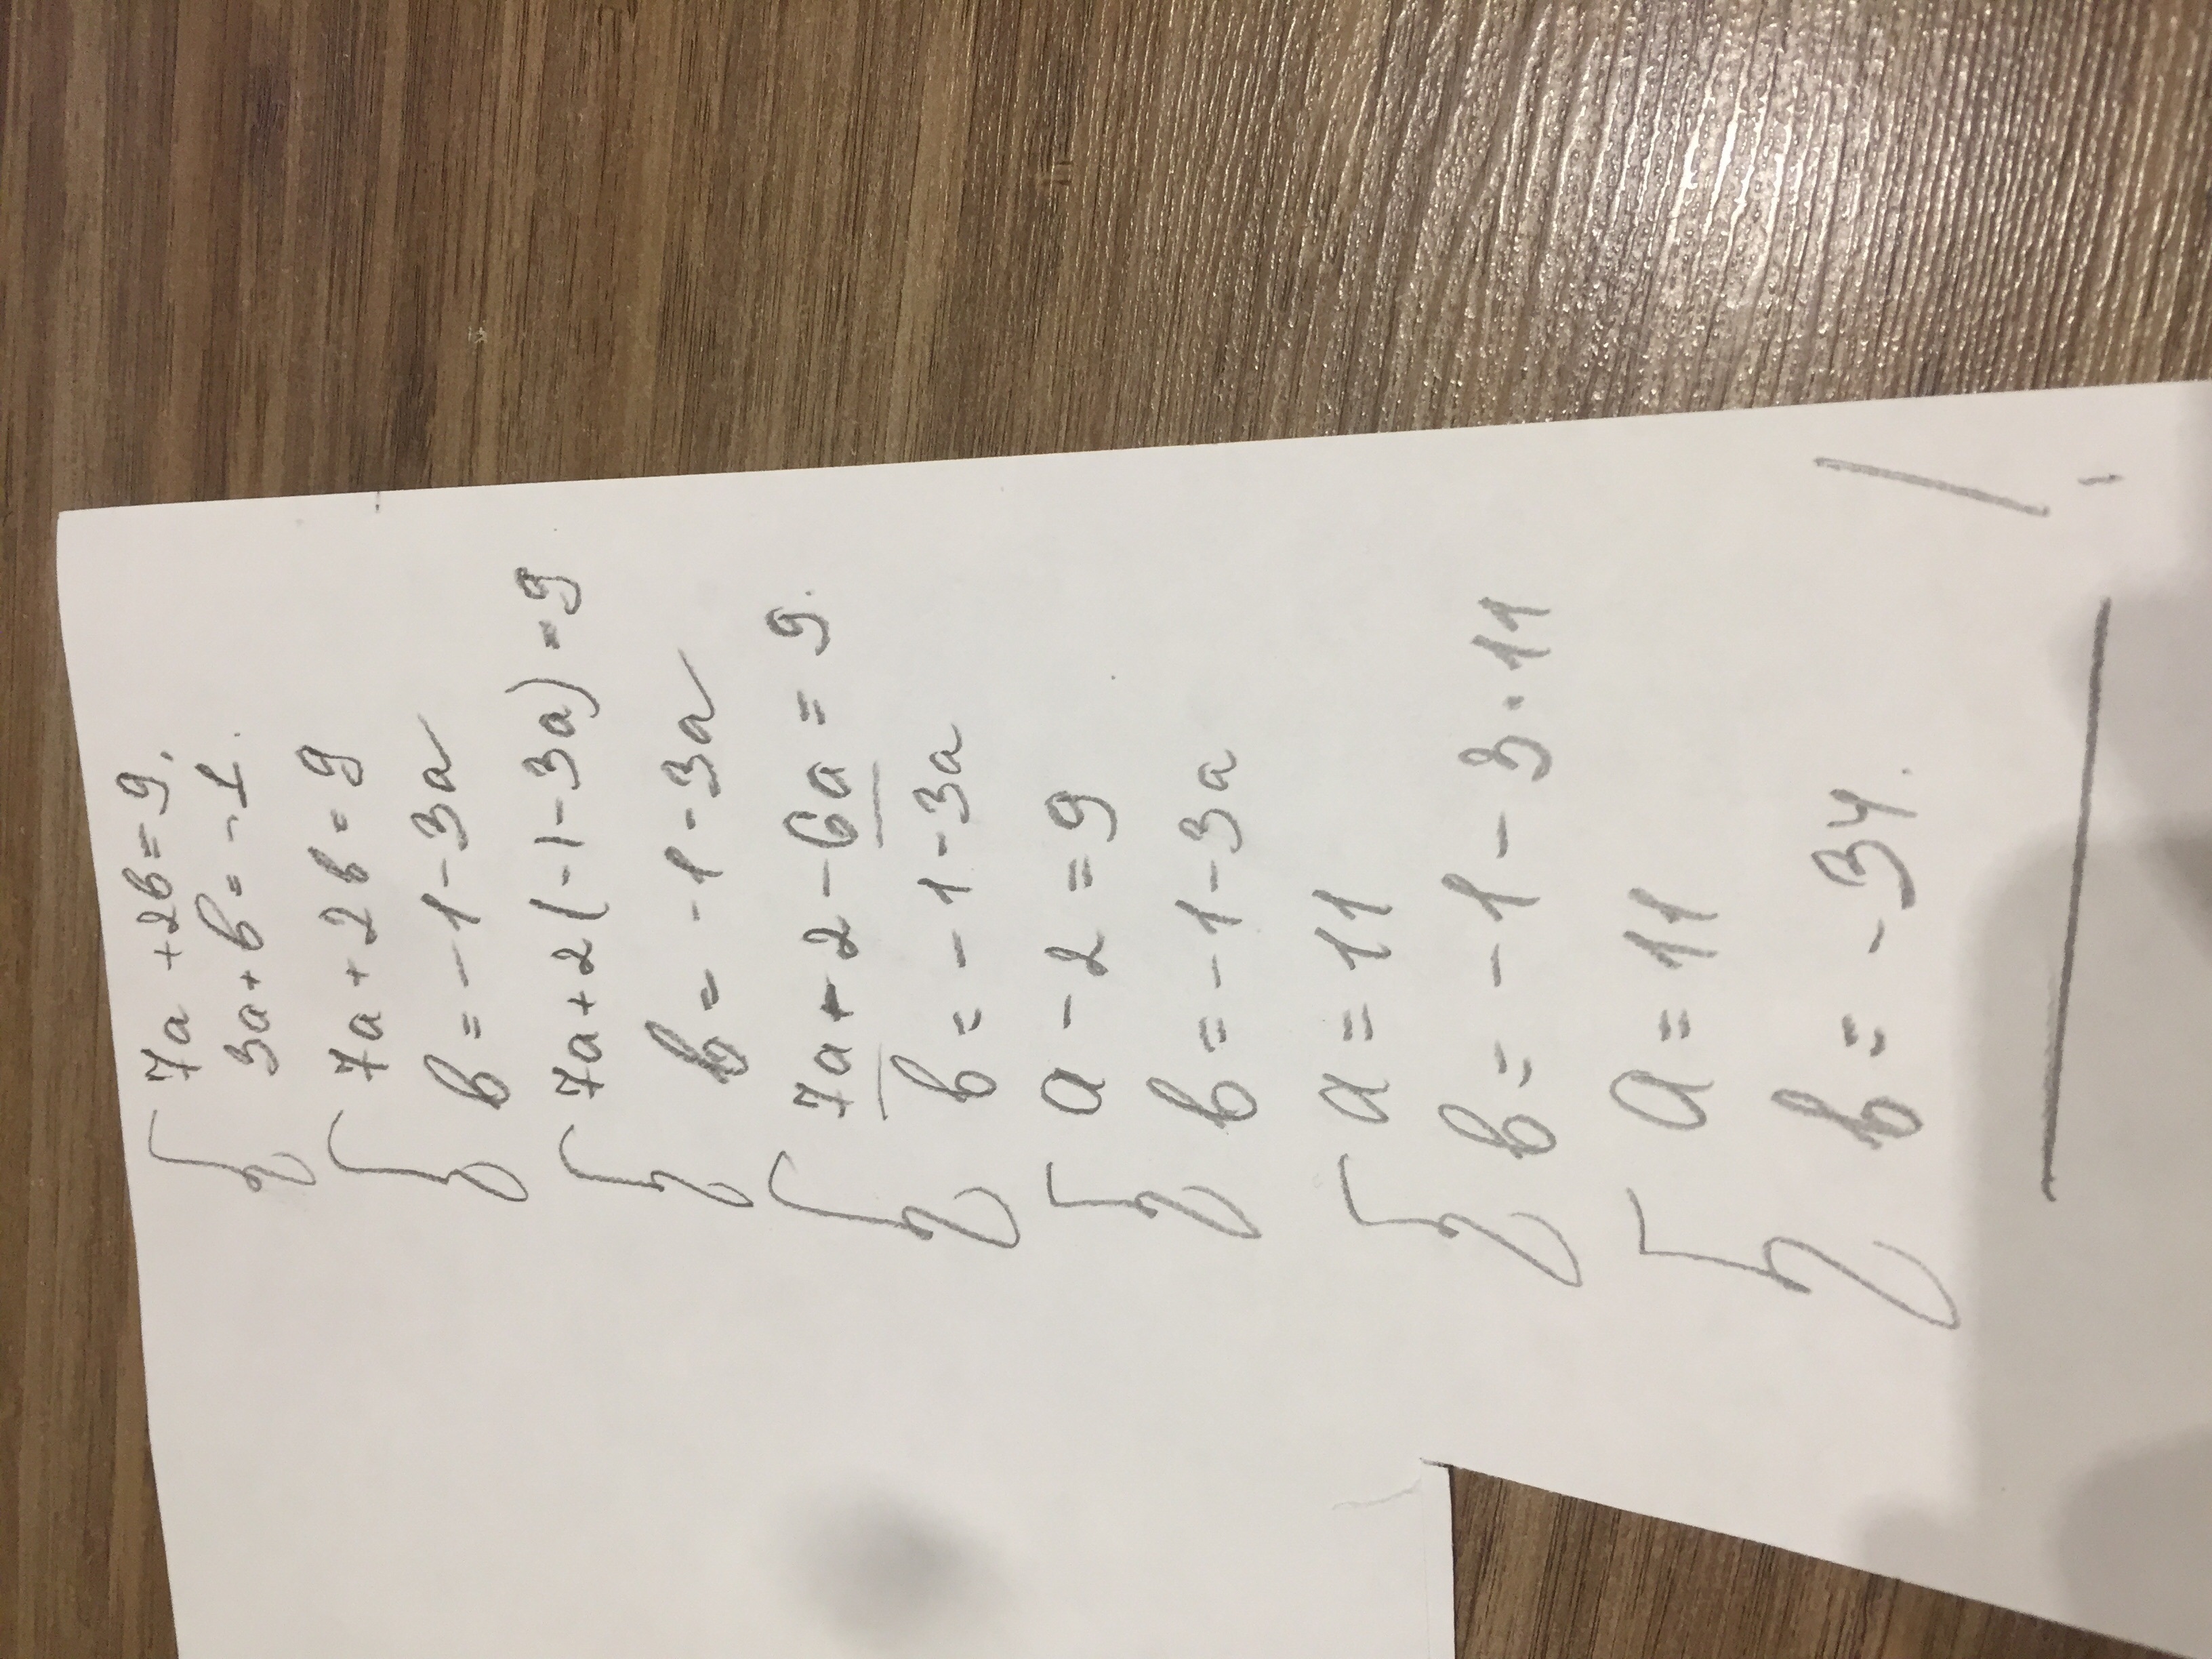 7a + 2b = 9,
3a + b = -1.
7a + 2b = 9
b = -1 - 3a
7a + 2(-1 - 3a) = 9
b = -1 - 3a
7a - 2 - 6a = 9.
b = -1 - 3a
a - 2 = 9
b = -1 - 3a
a = 11
b = -1 - 3 · 11
a = 11
b = -34.